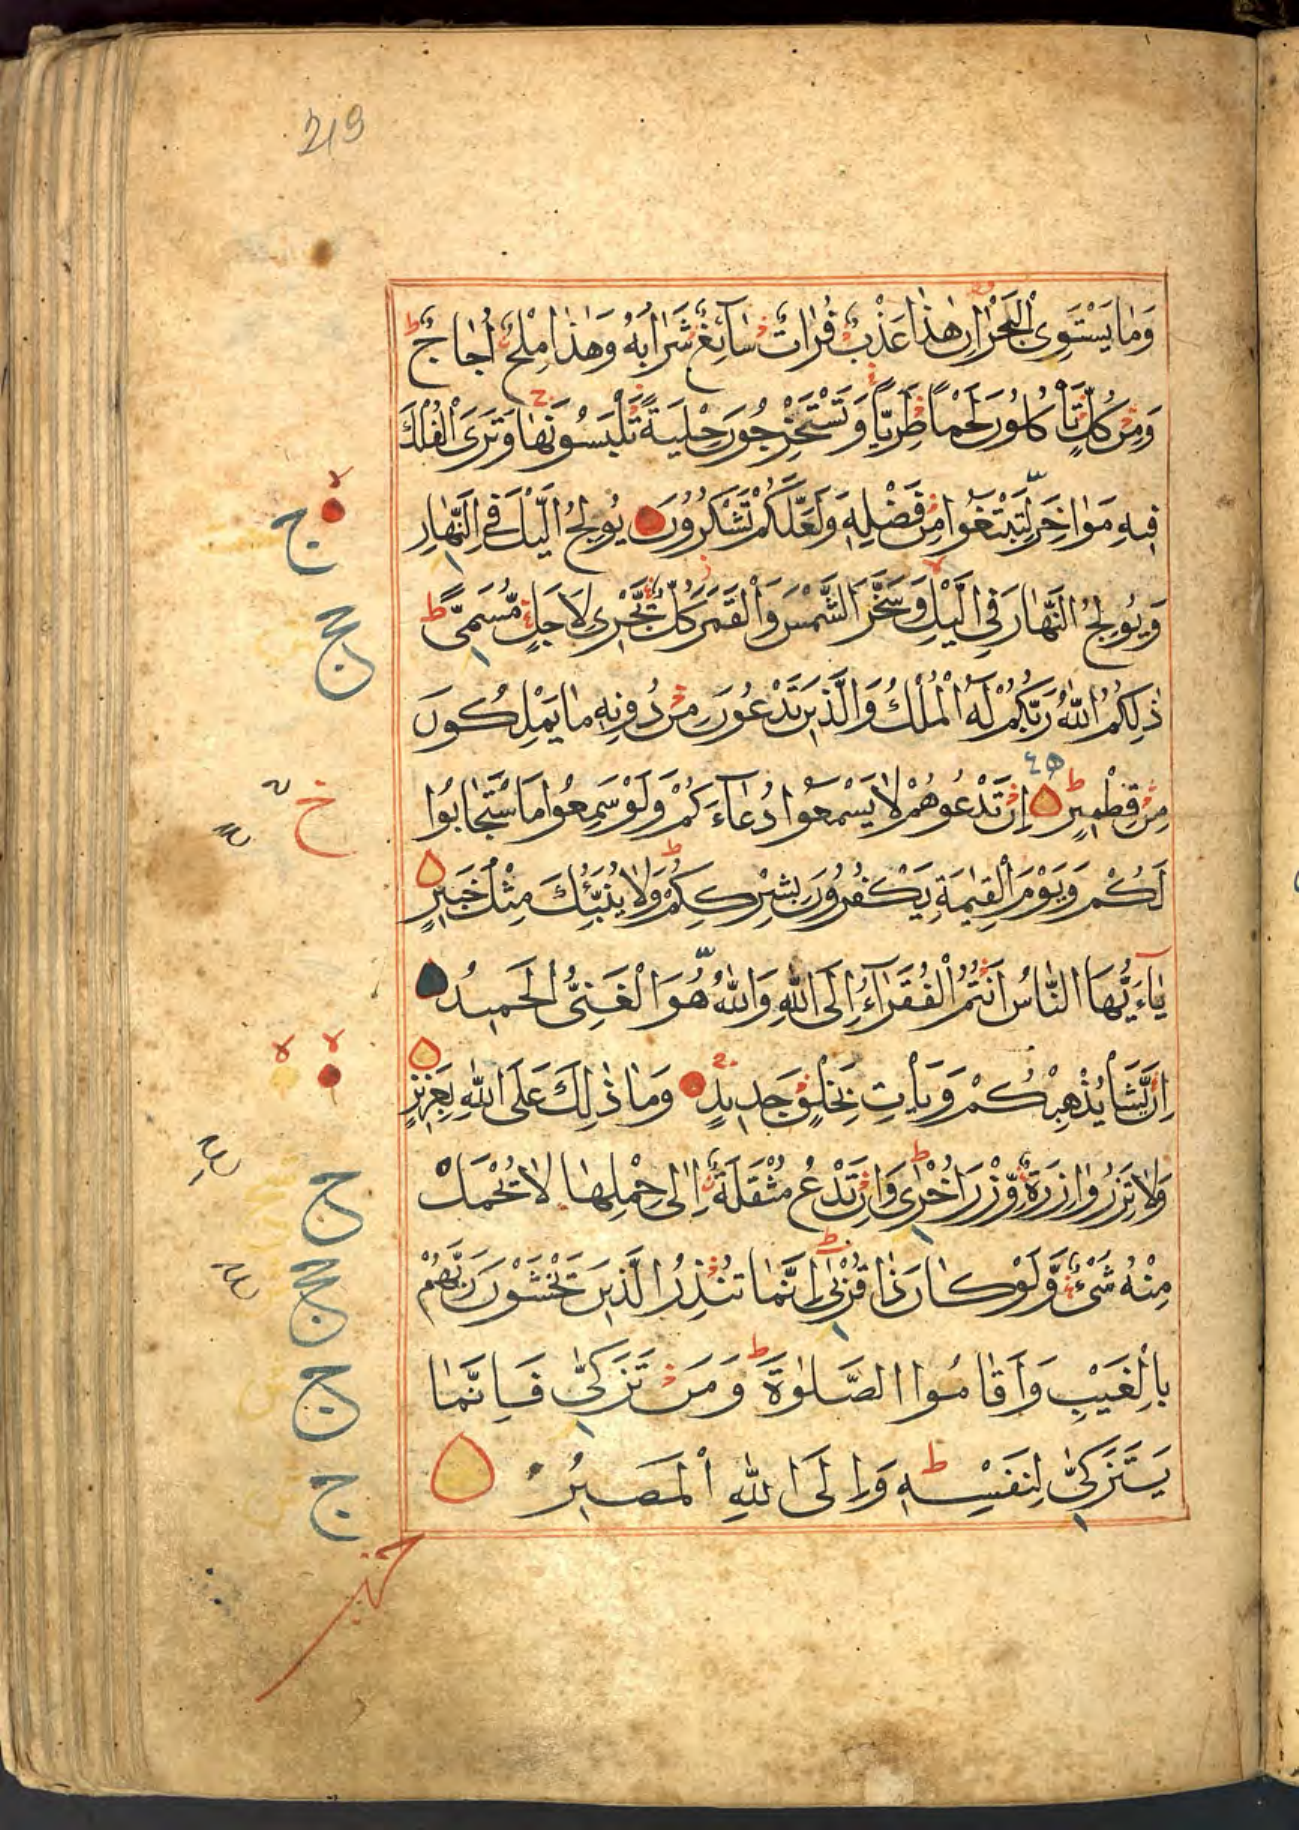 219
وَمَا يَسْتَوِى الْبَحْرَانِ هٰذَا عَذْبٌ فُرَاتٌ سَآئِغٌ شَرَابُهُ وَهٰذَا مِلْحٌ اُجَاجٌ ط
وَمِنْ كُلٍّ تَأْكُلُونَ لَحْمًا طَرِيًّا وَتَسْتَخْرِجُونَ حِلْيَةً تَلْبَسُونَهَا ج وَتَرَى الْفُلْكَ
فِيهِ مَوَاخِرَ لِتَبْتَغُوا مِنْ فَضْلِهِ وَلَعَلَّكُمْ تَشْكُرُونَ يُولِجُ الَّيْلَ فِى النَّهَارِ
وَيُولِجُ النَّهَارَ فِى الَّيْلِ لا وَسَخَّرَ الشَّمْسَ وَالْقَمَرَ ز كُلٌّ تَجْرِى لِاَجَلٍ مُّسَمًّى ط
ذٰلِكُمُ اللّٰهُ رَبُّكُمْ لَهُ الْمُلْكُ وَالَّذِينَ تَدْعُونَ مِنْ دُونِهِ مَا يَمْلِكُونَ
مِنْ قِطْمِيرٍ ط اِنْ تَدْعُوهُمْ لَا يَسْمَعُوا دُعَآءَكُمْ وَلَوْ سَمِعُوا مَا سْتَجَابُوا
لَكُمْ وَيَوْمَ الْقِيٰمَةِ يَكْفُرُونَ بِشِرْكِكُمْ ط وَلَا يُنَبِّئُكَ مِثْلُ خَبِيرٍ
يٰآءَيُّهَا النَّاسُ اَنْتُمُ الْفُقَرَآءُ اِلَى اللّٰهِ وَاللّٰهُ هُوَ الْغَنِىُّ الْحَمِيدُ
اِنْ يَّشَأْ يُذْهِبْكُمْ وَيَأْتِ بِخَلْقٍ جَدِيدٍ ج وَمَا ذٰلِكَ عَلَى اللّٰهِ بِعَزِيزٍ
وَلَا تَزِرُ وَازِرَةٌ وِّزْرَ اُخْرٰى ط وَاِنْ تَدْعُ مُثْقَلَةٌ اِلٰى حِمْلِهَا لَا يُحْمَلْ
مِنْهُ شَىْءٌ وَّلَوْ كَانَ ذَا قُرْبٰى ط اِنَّمَا تُنْذِرُ الَّذِينَ يَخْشَوْنَ رَبَّهُمْ
بِالْغَيْبِ وَاَقَامُوا الصَّلٰوةَ ط وَمَنْ تَزَكّٰى فَاِنَّمَا
يَتَزَكّٰى لِنَفْسِهِ ط وَاِلَى اللّٰهِ الْمَصِيرُ